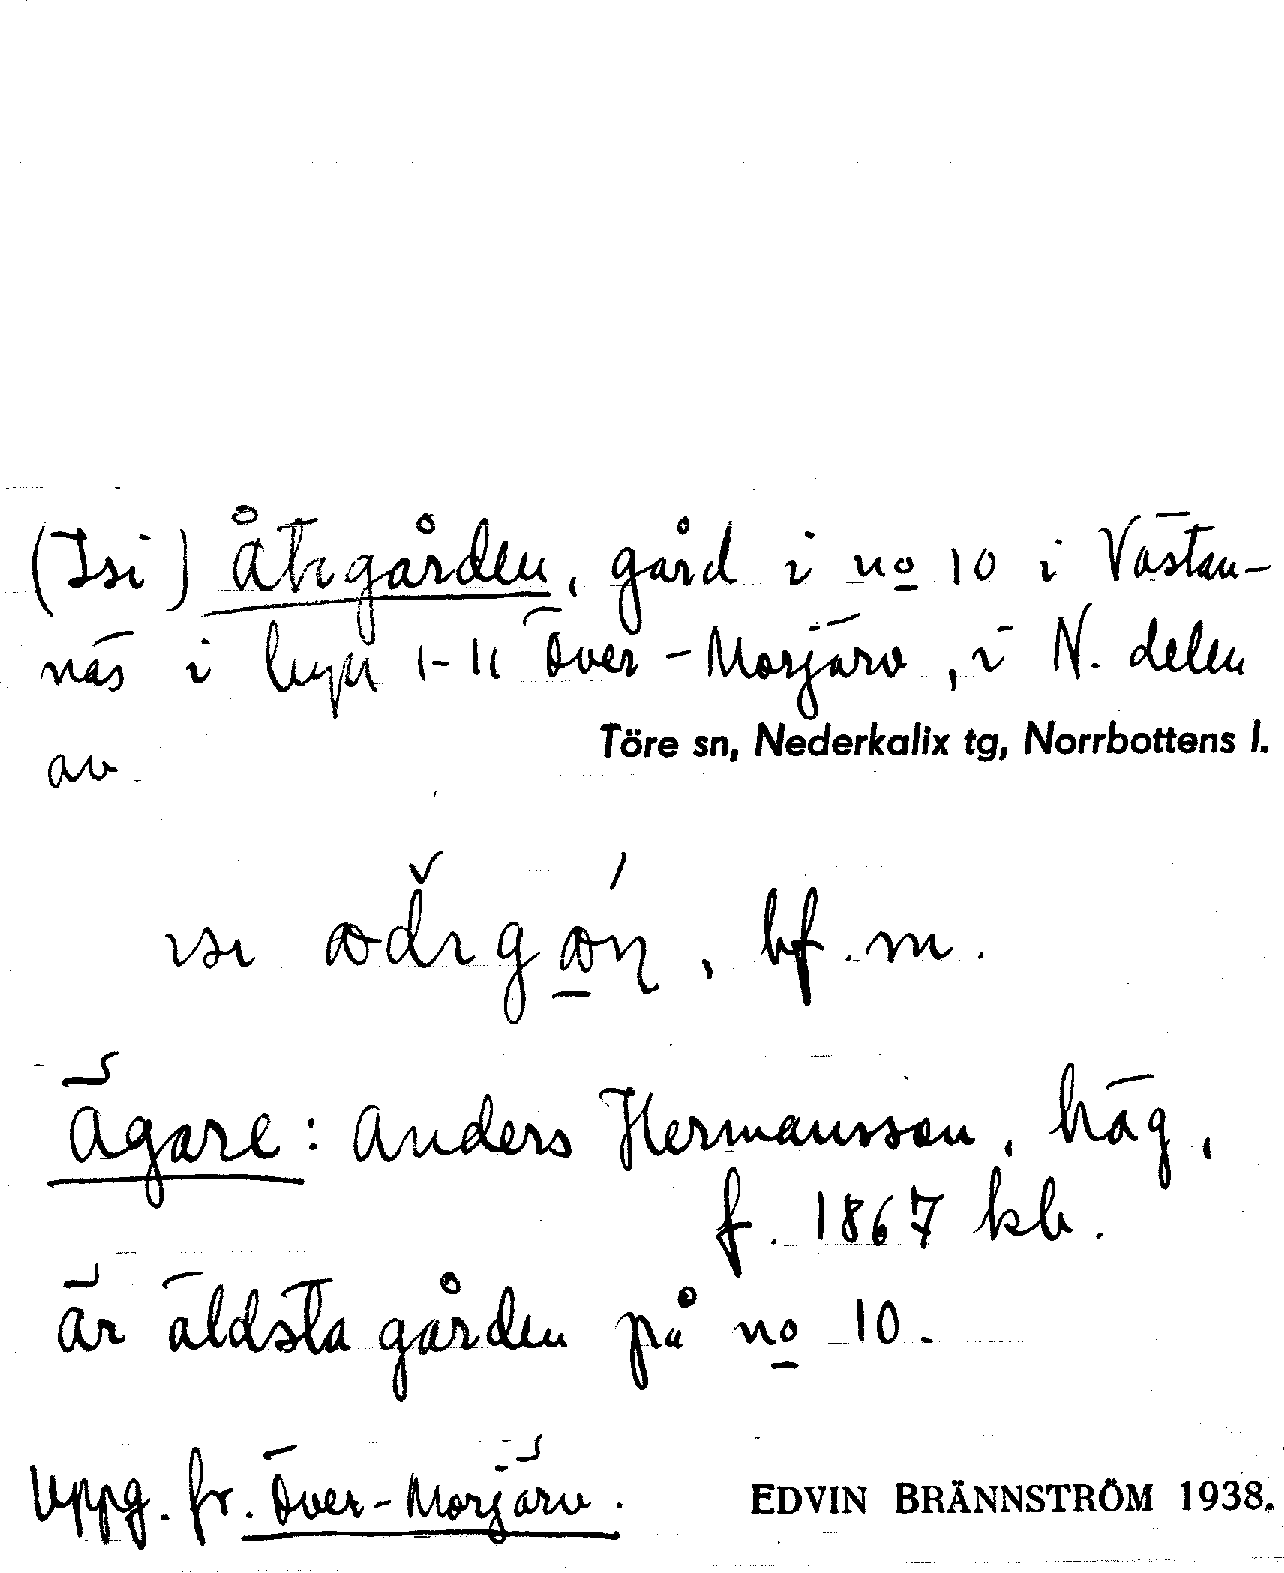 (Isi) Åtigården, gård i no 10 i Västan-
näs i byn 1-11 Över-Morjärv, i N. delen
Töre sn, Nederkalix tg, Norrbottens l.
av.
bf. m.
Ägare: Anders Hermansson, häg,
f. 1867 kb.
är äldsta gården på no 10.
Uppg. fr. Över-Morjärv.
EDVIN BRÄNNSTRÖM 1938.